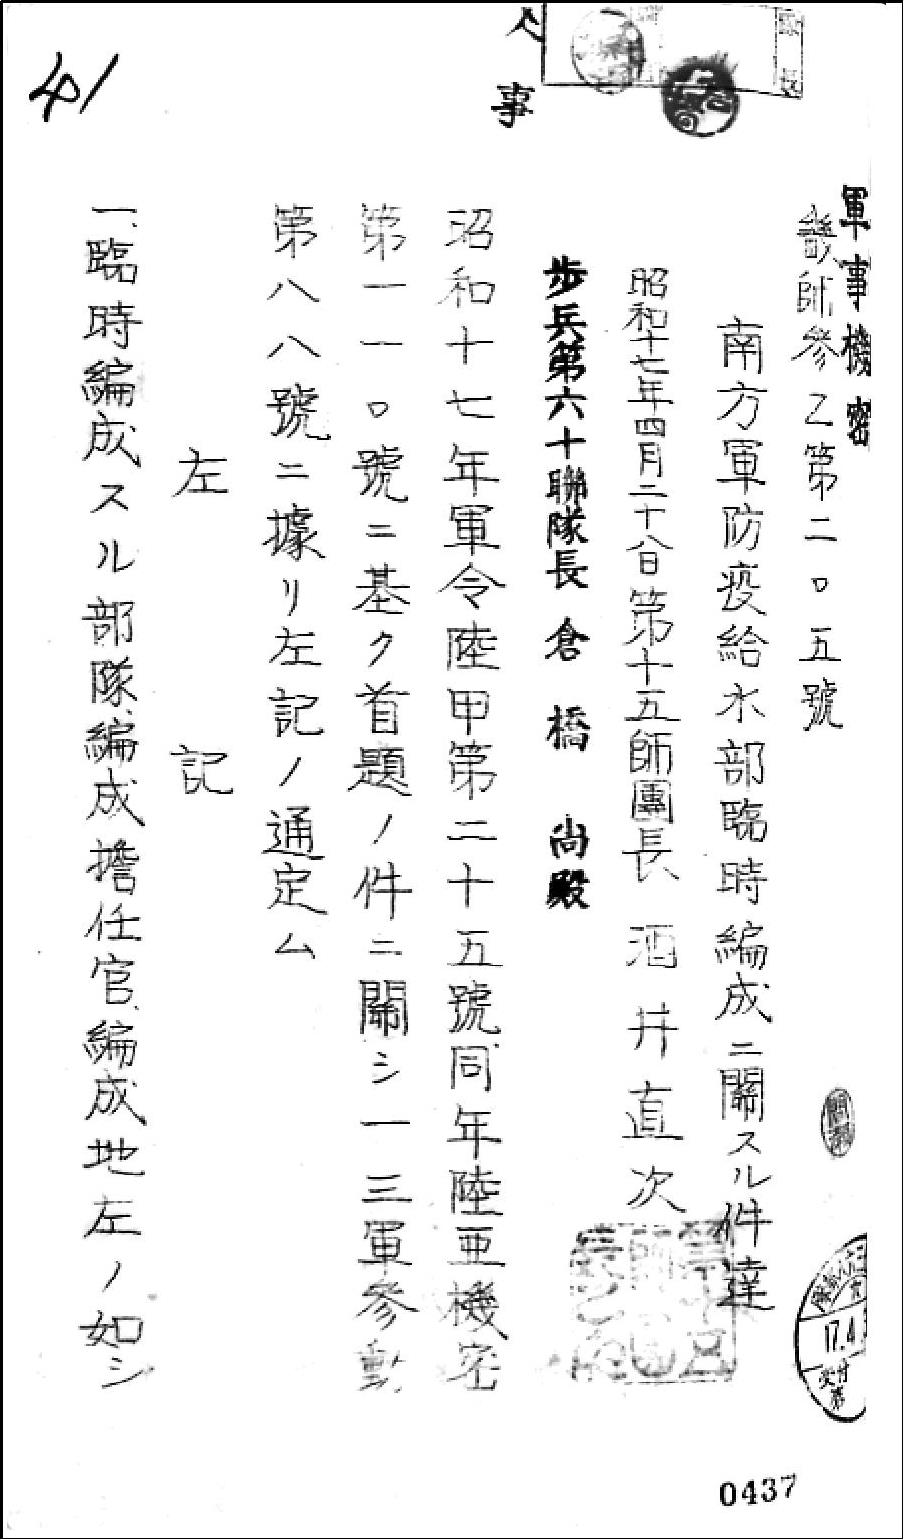 軍事機密
人事
41
畿師參乙第二〇五號
南方軍防疫給水部臨時編成ニ關スル件達
昭和十七年四月二十八日第十五師團長 酒井直次
歩兵第六十聯隊長倉橋尚殿
昭和十七年軍令陸甲第二十五號同年陸亜機密
第一一〇號ニ基ク首題ノ件ニ關シ一三軍參動
第八八號ニ據リ左記ノ通定ム
左記
一、臨時編成スル部隊、編成擔任官、編成地左ノ如シ
17.4
交付
0437